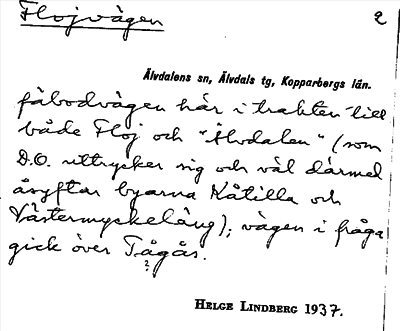 Flojvägen 2
Älvdalens sn, Älvdals tg, Kopparbergs län.
fäbodvägen här i trakten till
både Floj och "Älvdalen" (som
D.O. uttrycker sig och väl därmed
åsyftar byarna Kåtilla och
Västermyckeläng); vägen i fråga
gick över Tågås.
?
HELGE LINDBERG 1937.